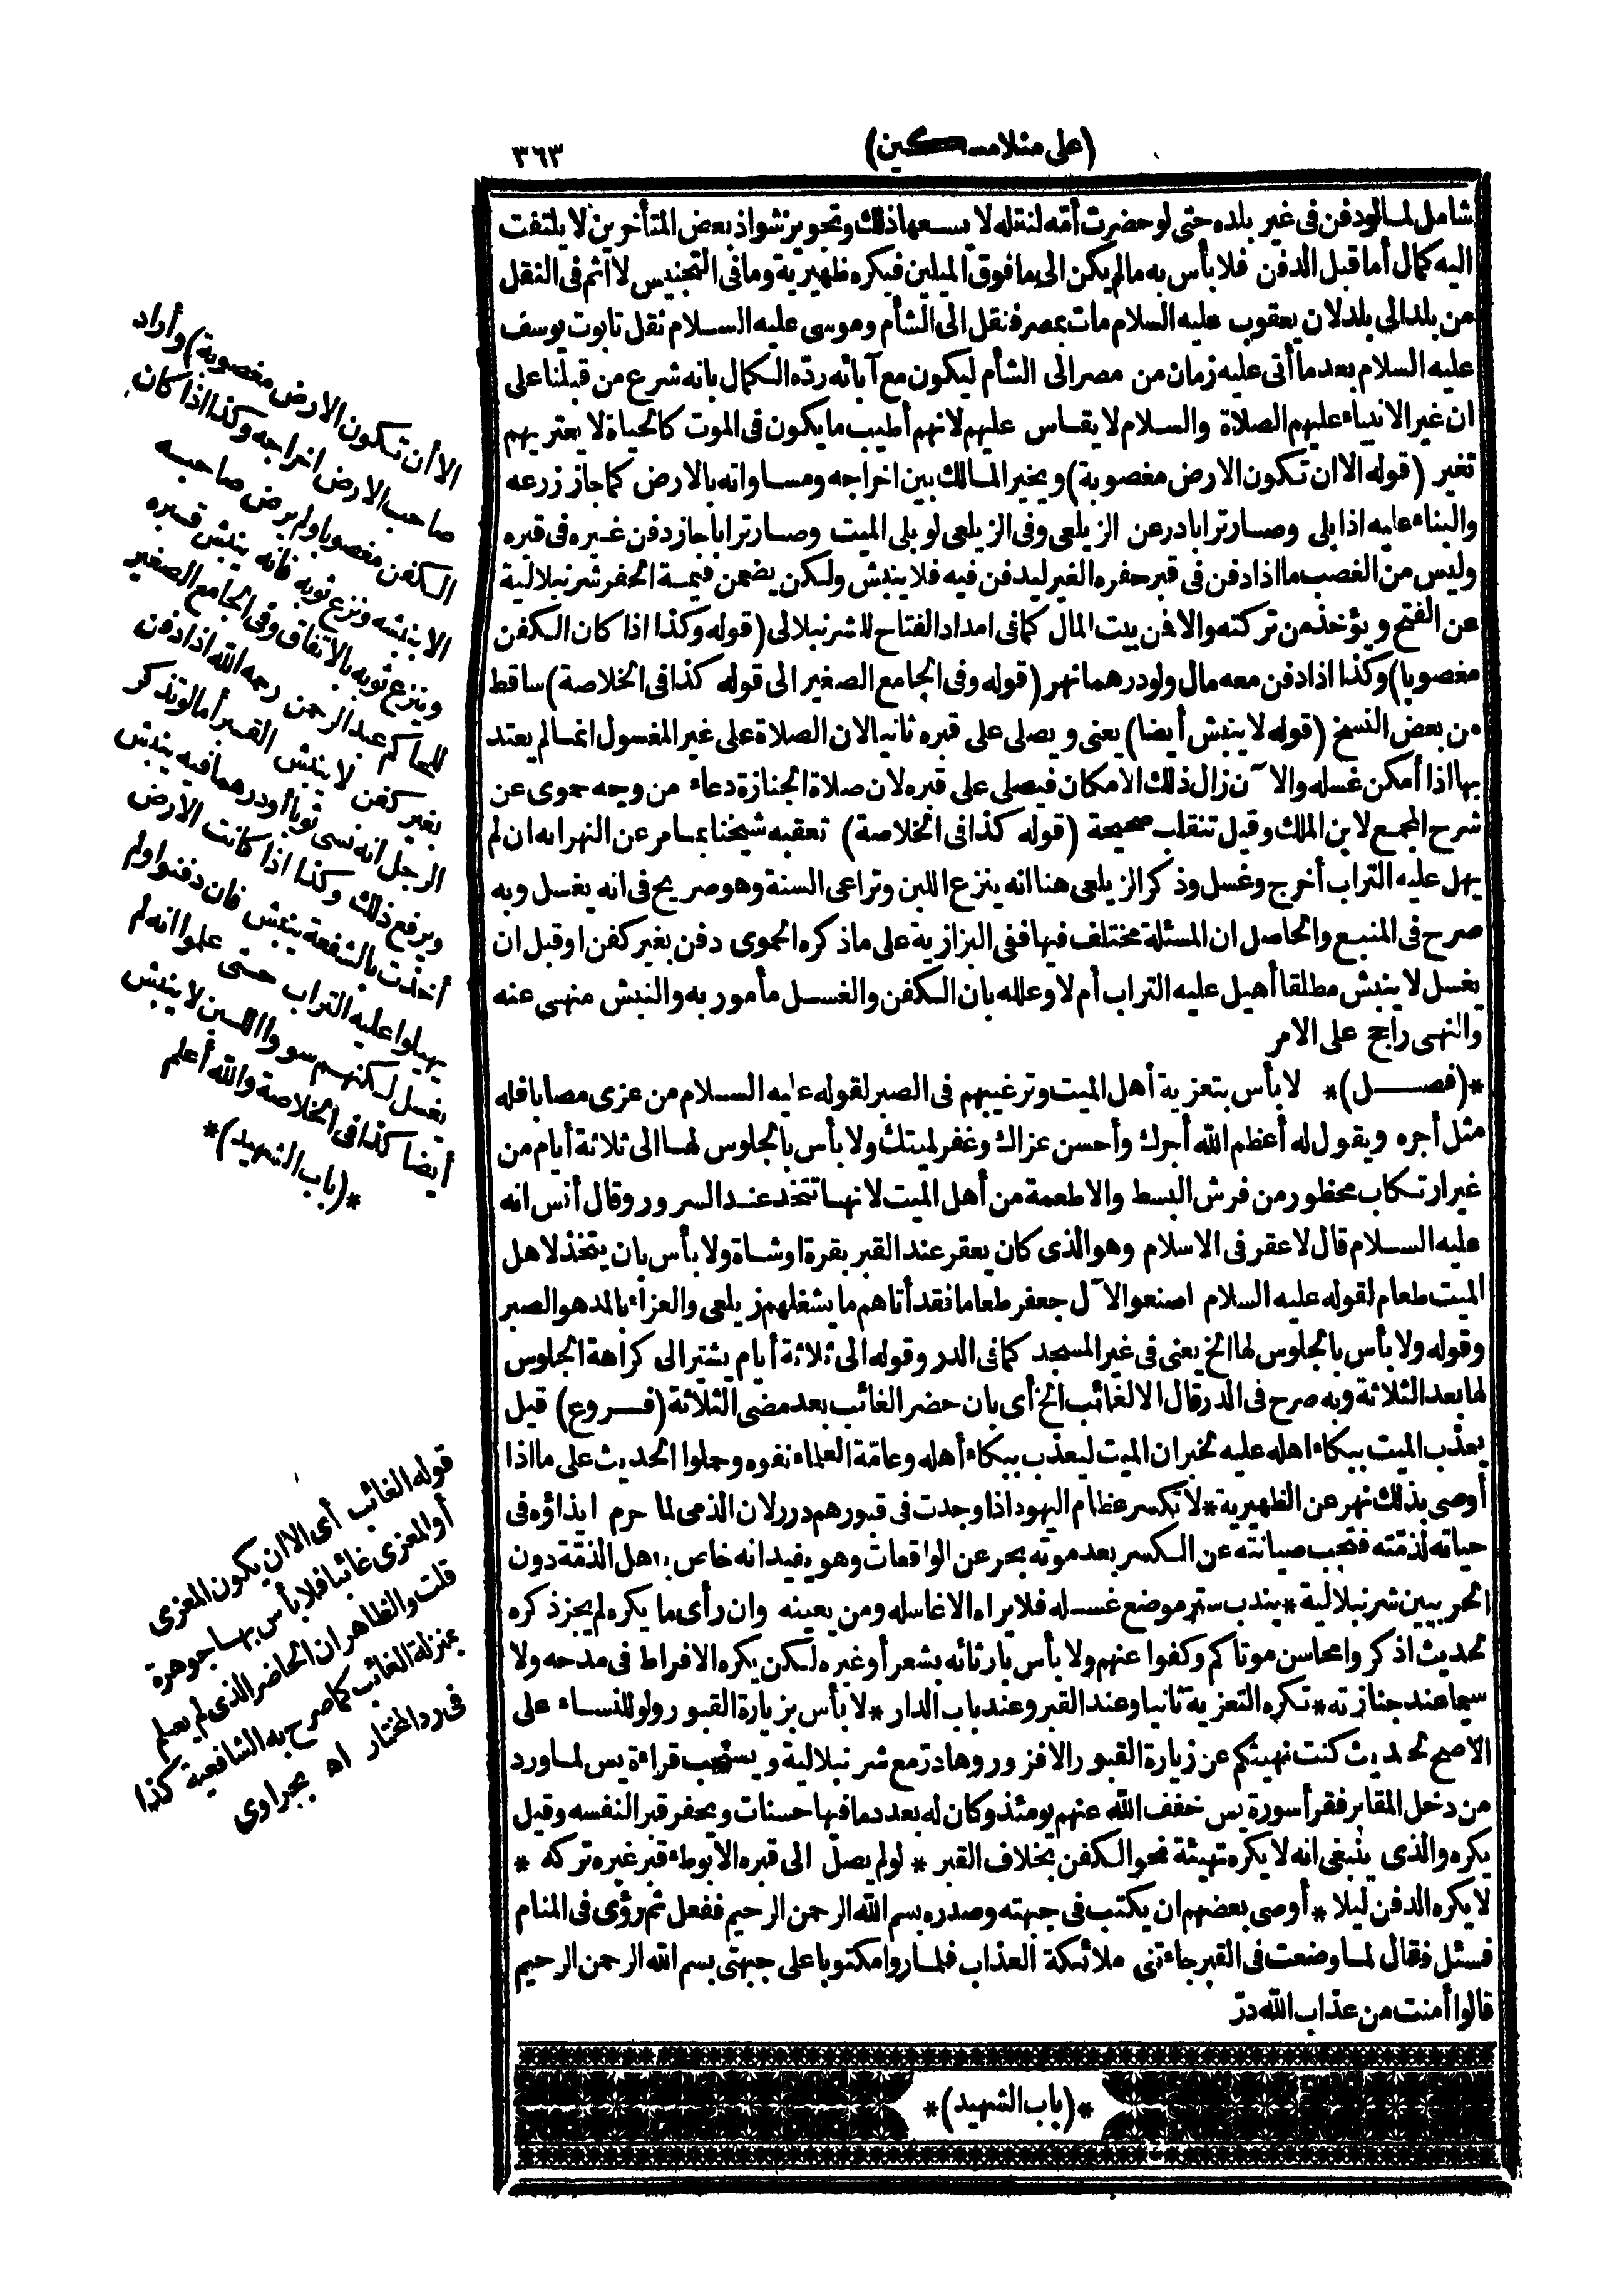 (على منلا مسكين)
٣٦٣
شامل لما لو دفن فى غير بلده حتى لو حضرت أمّه لنقله لا يسعها ذلك وتجويز شواذ بعض المتأخرين لا يلتفت
اليه كمال أما قبل الدفن فلا بأس به مالم يكن الى ما فوق الميلين فيكره ظهيرية وما فى التجنيس لا اثم فى النقل
من بلد الى بلد لان يعقوب عليه السلام مات بمصر فنقل الى الشأم وموسى عليه السلام نقل تابوت يوسف
عليه السلام بعد ما أتى عليه زمان من مصر الى الشأم ليكون مع آبائه ردّه الكمال بانه شرع من قبلنا على
ان غير الانبياء عليهم الصلاة والسلام لا يقاس عليهم لانهم أطيب ما يكون فى الموت كالحياة لا يعتريهم
تغير (قوله الا ان تكون الارض مغصوبة) ويخير المالك بين اخراجه ومساواته بالارض كما جاز زرعه
والبناء عليه اذا بلى وصار ترابا در عن الزيلعى وفى الزيلعى لو بلى الميت وصار ترابا جاز دفن غيره فى قبره
وليس من الغصب ما اذا دفن فى قبر حفره الغير ليدفن فيه فلا ينبش ولكن يضمن قيمة الحفر شرنبلالية
عن الفتح ويؤخذ من تركته والا فمن بيت المال كما فى امداد الفتاح للشرنبلالى (قوله وكذا اذا كان الكفن
مغصوبا) وكذا اذا دفن معه مال ولو درهما نهر (قوله وفى الجامع الصغير الى قوله كذا فى الخلاصة) ساقط
من بعض النسخ (قوله لا ينبش أيضا) يعنى ويصلى على قبره ثانيا لان الصلاة على غير المغسول انما لم يعتد
بها اذا أمكن غسله والآن زال ذلك الامكان فيصلى على قبره لان صلاة الجنازة دعاء من وجه حموى عن
شرح المجمع لابن الملك وقيل تنقلب صحيحة (قوله كذا فى الخلاصة) تعقبه شيخنا بما مر عن النهر انه ان لم
يهل عليه التراب أخرج وغسل وذكر الزيلعى هنا انه ينزع اللبن وتراعى السنة وهو صريح فى انه يغسل وبه
صرح فى المنبع والحاصل ان المسئلة مختلف فيها ففى البزازية على ما ذكره الحموى دفن بغير كفن او قبل ان
يغسل لا ينبش مطلقا أهيل عليه التراب أم لا وعلله بان الكفن والغسل مأمور به والنبش منهى عنه
والنهى راجح على الامر
*(فصل)* لا بأس بتعزية أهل الميت وترغيبهم فى الصبر لقوله عليه السلام من عزى مصابا فله
مثل أجره ويقول له أعظم الله أجرك وأحسن عزاك وغفر لميتك ولا بأس بالجلوس لها الى ثلاثة أيام من
غير ارتكاب محظور من فرش البسط والاطعمة من أهل الميت لانها تتخذ عند السرور وقال أنس انه
عليه السلام قال لا عقر فى الاسلام وهو الذى كان يعقر عند القبر بقرة او شاة ولا بأس بان يتخذ لاهل
الميت طعام لقوله عليه السلام اصنعوا لآل جعفر طعاما فقد أتاهم ما يشغلهم زيلعى والعزاء بالمد هو الصبر
وقوله ولا بأس بالجلوس لها الخ يعنى فى غير المسجد كما فى الدر وقوله الى ثلاثة أيام يشير الى كراهة الجلوس
لها بعد الثلاثة وبه صرح فى الدر قال الا لغائب الخ أى بان حضر الغائب بعد مضى الثلاثة (فروع) قيل
يعذب الميت ببكاء اهله عليه لخبر ان الميت ليعذب ببكاء أهله وعامّة العلماء نفوه وحملوا الحديث على ما اذا
أوصى بذلك نهر عن الظهيرية * لا تكسر عظام اليهود اذا وجدت فى قبورهم درر لان الذمى لما حرم ايذاؤه فى
حياته لذمّته فتجب صيانته عن الكسر بعد موته بحر عن الواقعات وهو يفيد انه خاص باهل الذمّة دون
الحربيين شرنبلالية * يندب ستر موضع غسله فلا يراه الا غاسله ومن يعينه وان رأى ما يكره لم يجز ذكره
لحديث اذكروا محاسن موتاكم وكفوا عنهم ولا بأس بارثائه بشعر أو غيره لكن يكره الافراط فى مدحه ولا
سيما عند جنازته * تكره التعزية ثانيا وعند القبر وعند باب الدار * لا بأس بزيارة القبور ولو للنساء على
الاصح لحديث كنت نهيتكم عن زيارة القبور الا فزوروها درّ مع شرنبلالية ويستحب قراءة يس لما ورد
من دخل المقابر فقرأ سورة يس خفف الله عنهم يومئذ وكان له بعدد ما فيها حسنات ويحفر قبرا لنفسه وقيل
يكره والذى ينبغى انه لا يكره تهيئة نحو الكفن بخلاف القبر * لو لم يصل الى قبره الا بوطء قبر غيره تركه *
لا يكره الدفن ليلا * أوصى بعضهم ان يكتب فى جبهته وصدره بسم الله الرحمن الرحيم ففعل ثم رؤى فى المنام
فسئل فقال لما وضعت فى القبر جاءتنى ملائكة العذاب فلما رأوا مكتوبا على جبهتى بسم الله الرحمن الرحيم
قالوا أمنت من عذاب الله درّ
*(باب الشهيد)*
الا أن تكون الارض مغصوبة) وأراد
صاحب الارض اخراجه وكذا اذا كان
الكفن مغصوبا ولم يرض صاحبه
الا بنبشه ونزع ثوبه فانه ينبش قبره
وينزع ثوبه بالاتفاق وفى الجامع الصغير
للحاكم عبد الرحمن رحمه الله اذا دفن
بغير كفن لا ينبش القبر أما لو تذكر
الرجل انه نسى ثوبا أو درهما فيه ينبش
ويرفع ذلك وكذا اذا كانت الارض
أخذت بالشفعة ينبش فان دفنوا ولم
يهيلوا عليه التراب حتى علموا انه لم
يغسل لكنهم سووا اللبن لا ينبش
أيضا كذا فى الخلاصة والله أعلم
*(باب الشهيد)*
قوله الغائب أى الا ان يكون المعزى
أو المعزى غائبا فلا بأس بها جوهرة
قلت والظاهر ان الحاضر الذى لم يعلم
بمنزلة الغائب كما صرح به الشافعية كذا
فى رد المحتار اه بحراوى